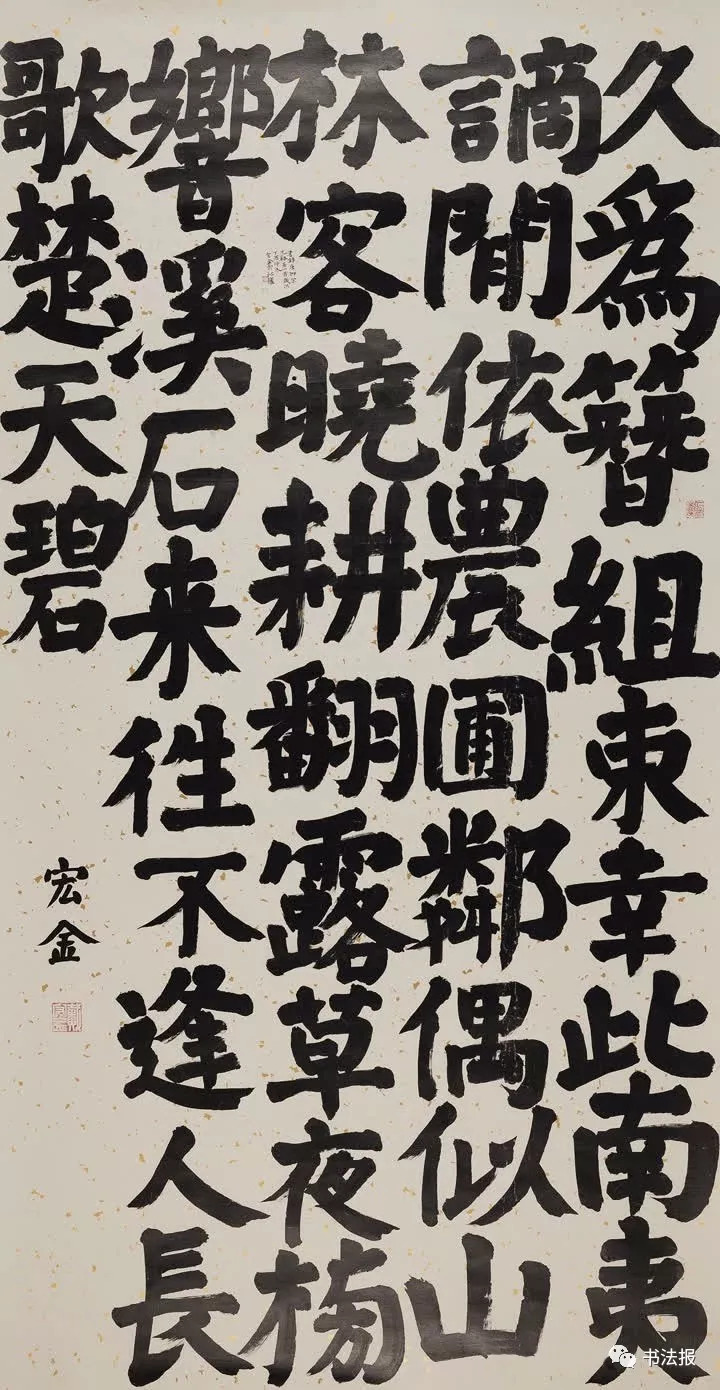 久為簪組束幸此南夷
謫閒依農圃鄰偶似山
林客曉耕翻露草夜榜
響溪石来徃不逢人長
歌楚天碧
宏金
书法报